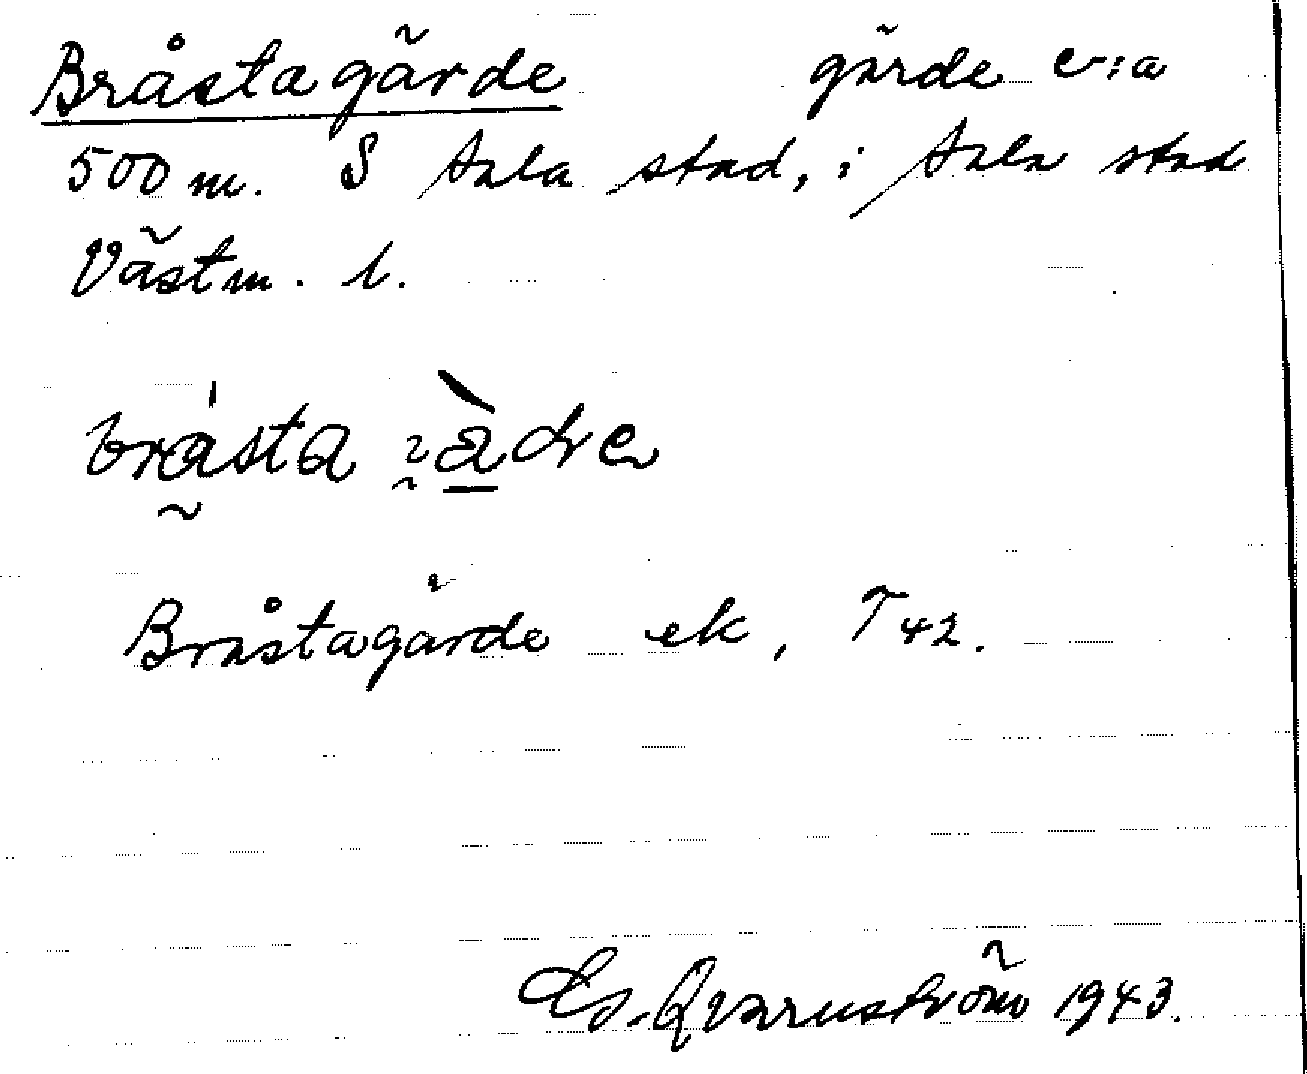 Bråstagärde gärde c:a
500 m. S Sala stad, i Sala stad
Västm. l.
Bråstagärde ek, T42.
Qvarnström 1943.